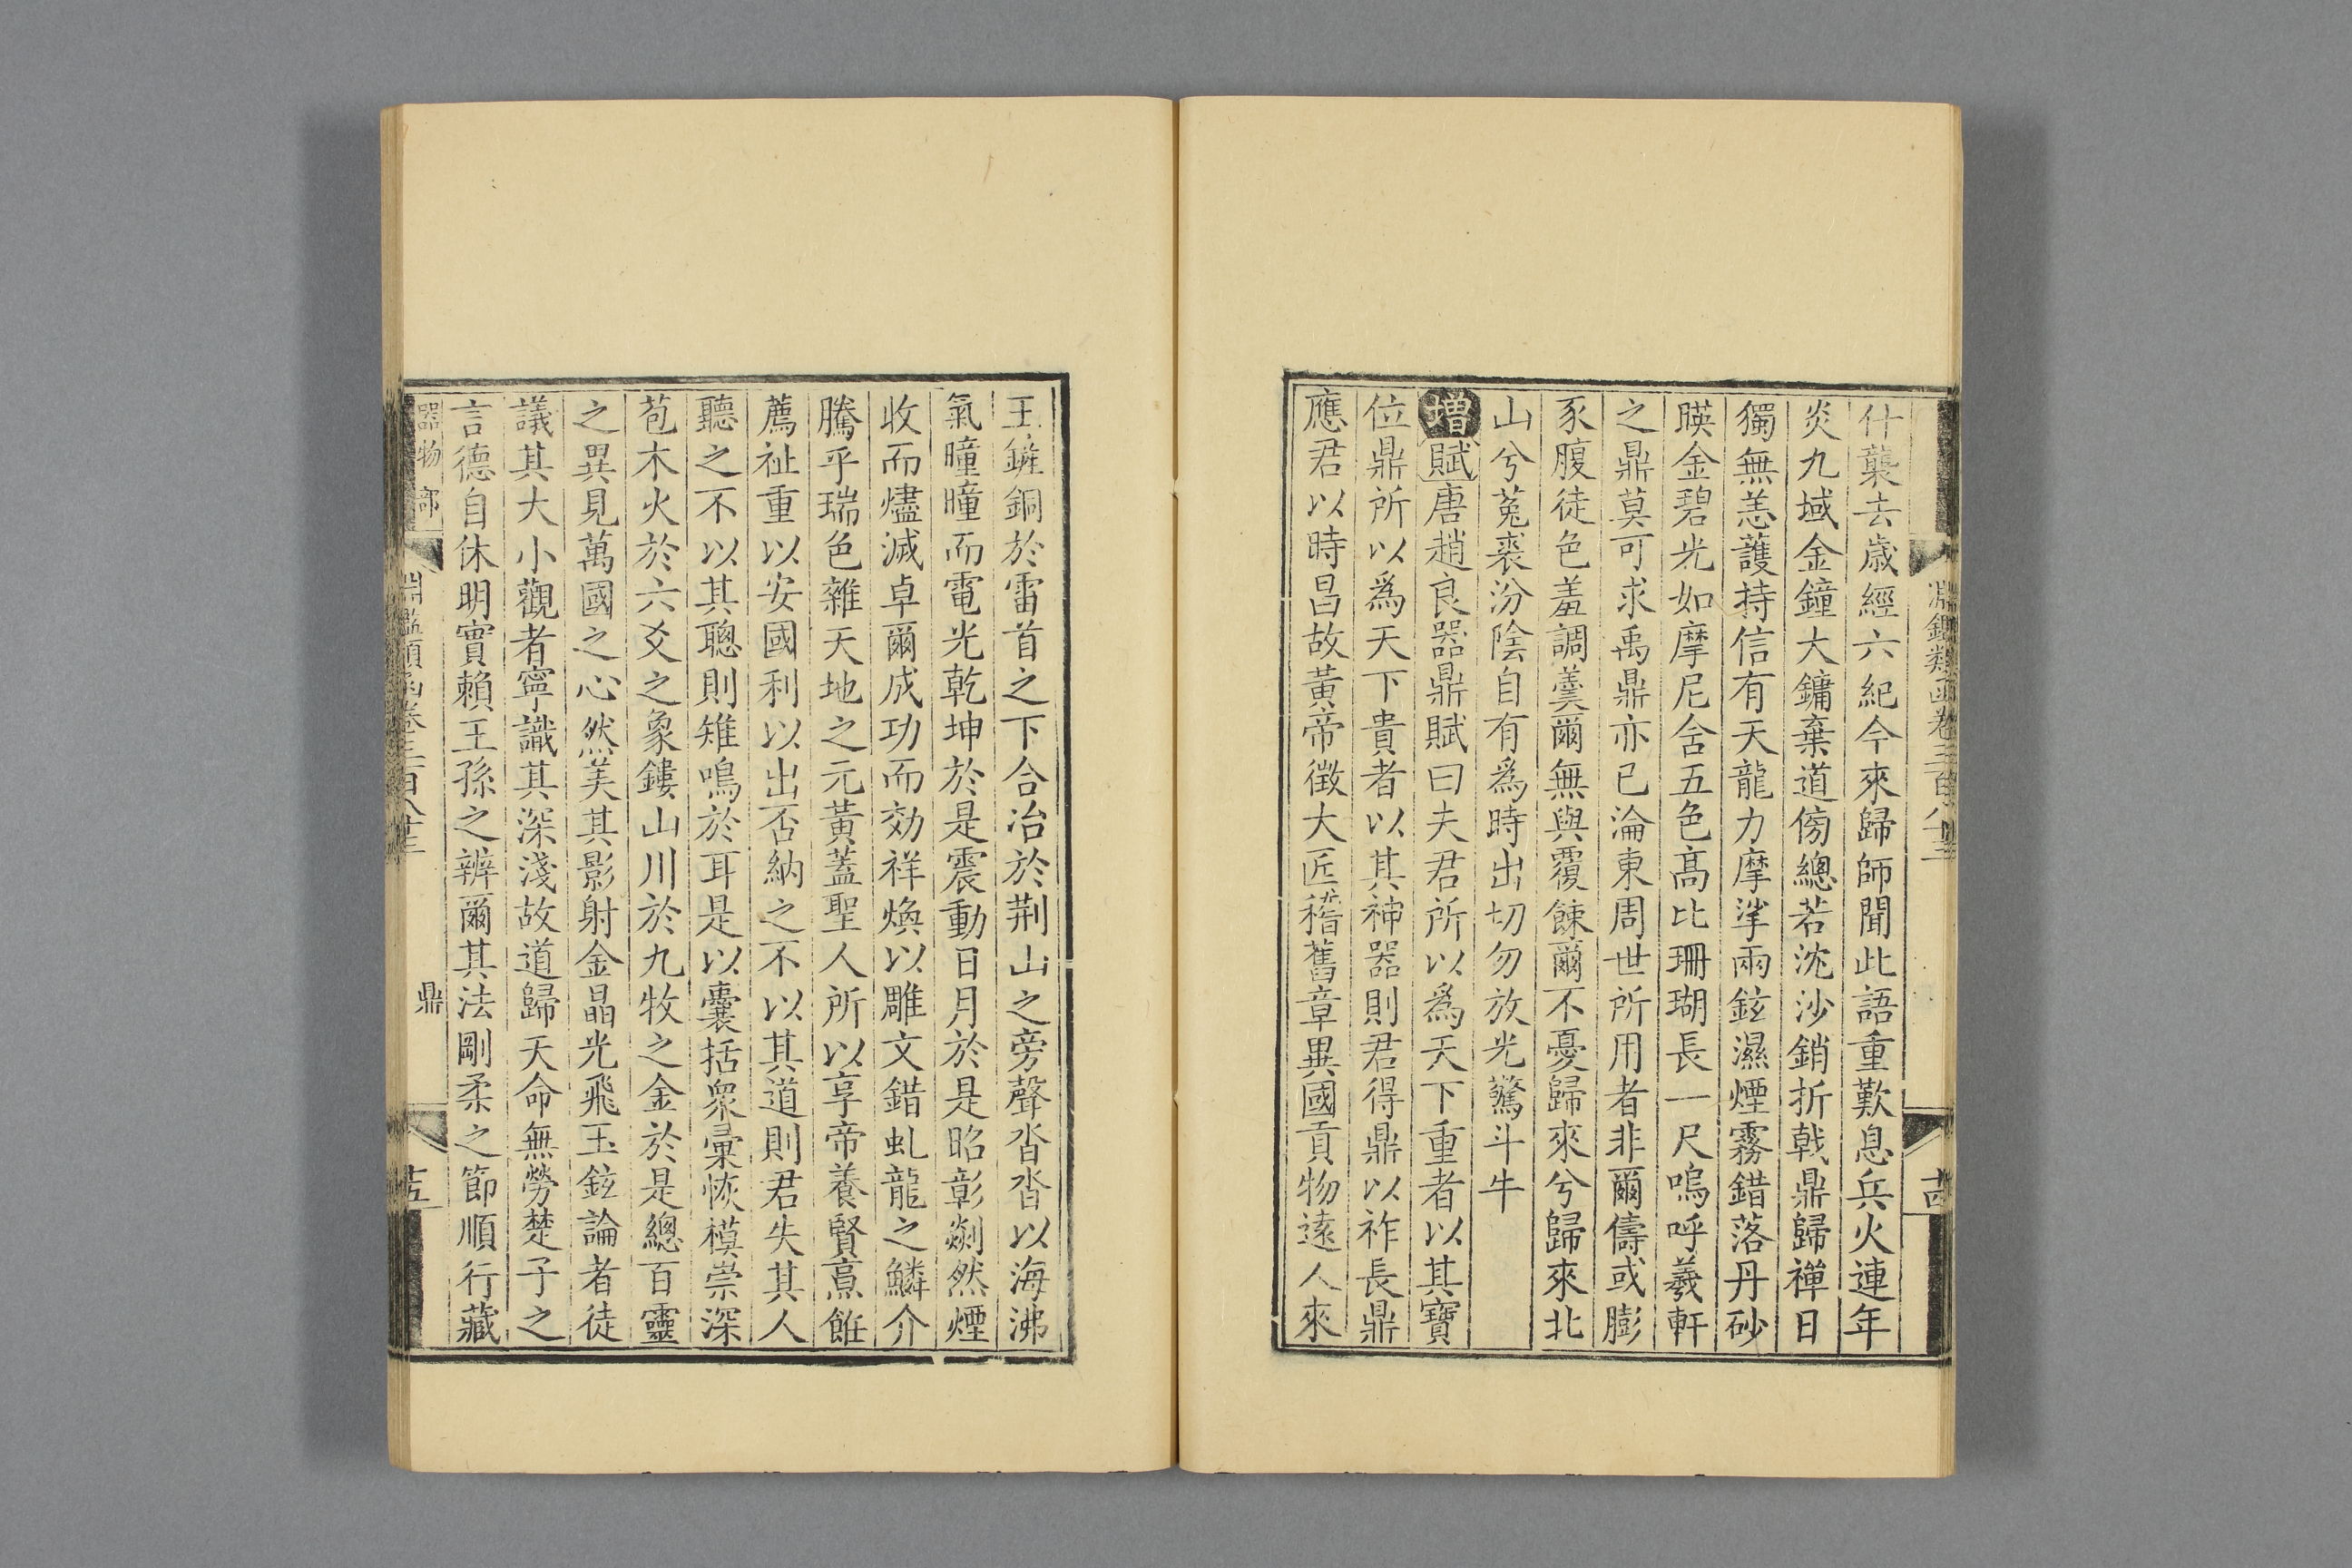 什襲去歳經六紀今來歸師聞此語重歎息兵火連年
炎九域金鐘大鏞棄道傍總若沈沙銷折戟鼎歸禪日
獨無恙䕶持信有天龍力摩挲兩鉉濕煙霧錯落丹砂
暎金碧光如摩尼含五色高比珊瑚長一尺嗚呼羲軒
之鼎莫可求禹鼎亦已淪東周世所用者非爾儔或膨
豕腹徒色羞調羹爾無與覆餗爾不憂歸來兮歸來北
山兮菟裘汾陰自有為時出切勿放光驚斗牛
增賦唐趙良器鼎賦曰夫君所以為天下重者以其寶
位鼎所以為天下貴者以其神器則君得鼎以祚長鼎
應君以時昌故黃帝徴大匠稽舊章異國貢物遠人來
王鏟銅於雷首之下合冶於荆山之旁聲沓沓以海沸
氣曈曈而電光乾坤於是震動日月於是昭彰剡然煙
收而燼滅卓爾成功而効祥煥以雕文錯虬龍之鱗介
騰乎瑞色雜天地之元黃蓋聖人所以享帝養賢亯餁
薦祉重以安國利以出否納之不以其道則君失其人
聽之不以其聰則雉鳴於耳是以囊括衆彙恢模崇深
苞木火於六爻之象鏤山川於九牧之金於是總百靈
之異見萬國之心然美其影射金晶光飛玉鉉論者徒
議其大小觀者寧識其深淺故道歸天命無勞楚子之
言德自休明實賴王孫之辨爾其法剛柔之節順行藏
器物部 淵鑑類函卷三百八十三 鼎 十五